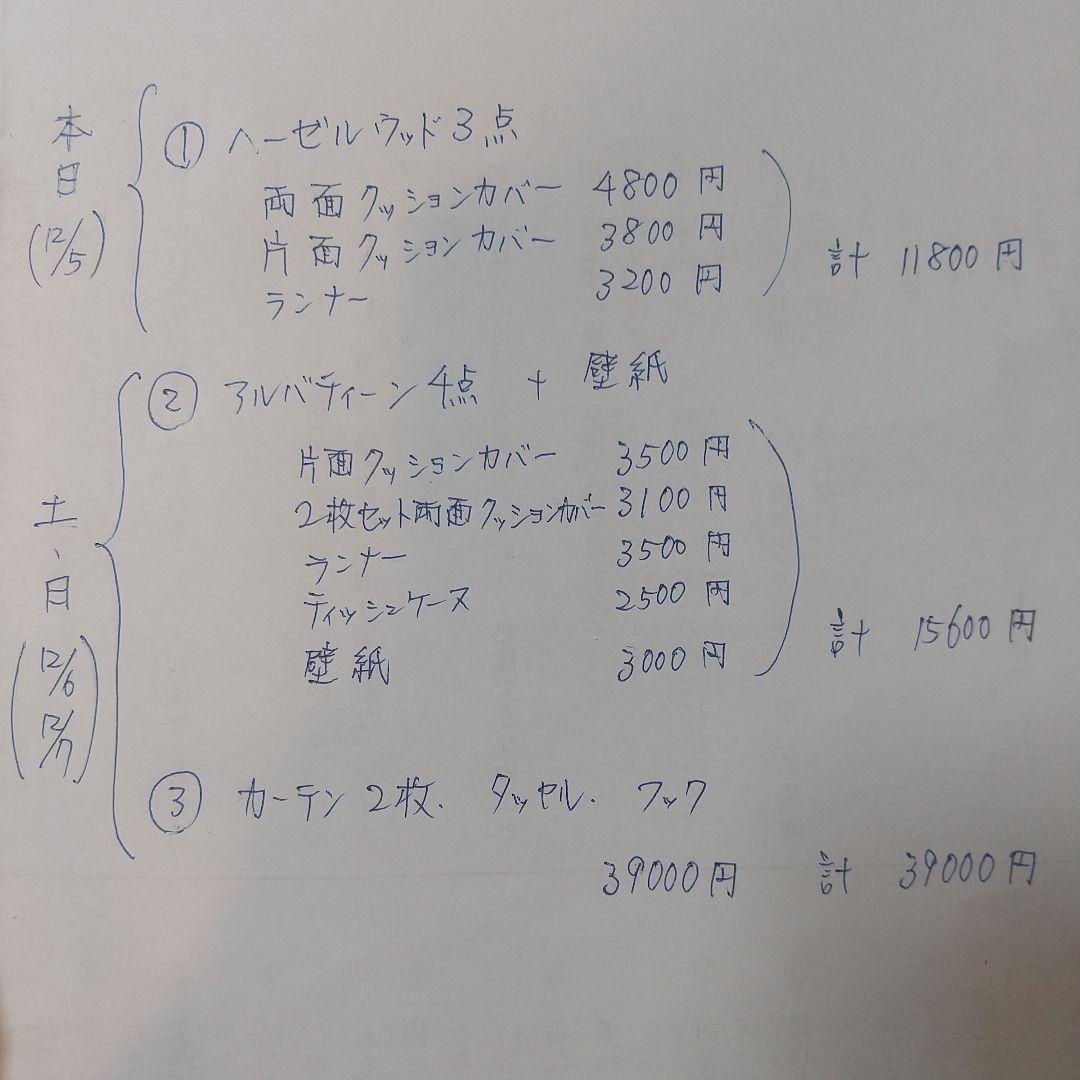 本日
(12/5)
① ヘーゼルウッド3点
両面クッションカバー 4800円
片面クッションカバー 3800円
ランナー 3200円
計 11800円
土、日
(12/6 12/7)
② アルバティーン4点 + 壁紙
片面クッションカバー 3500円
2枚セット両面クッションカバー 3100円
ランナー 3500円
ティッシュケース 2500円
壁紙 3000円
計 15600円
③ カーテン2枚. タッセル. フック
39000円 計 39000円